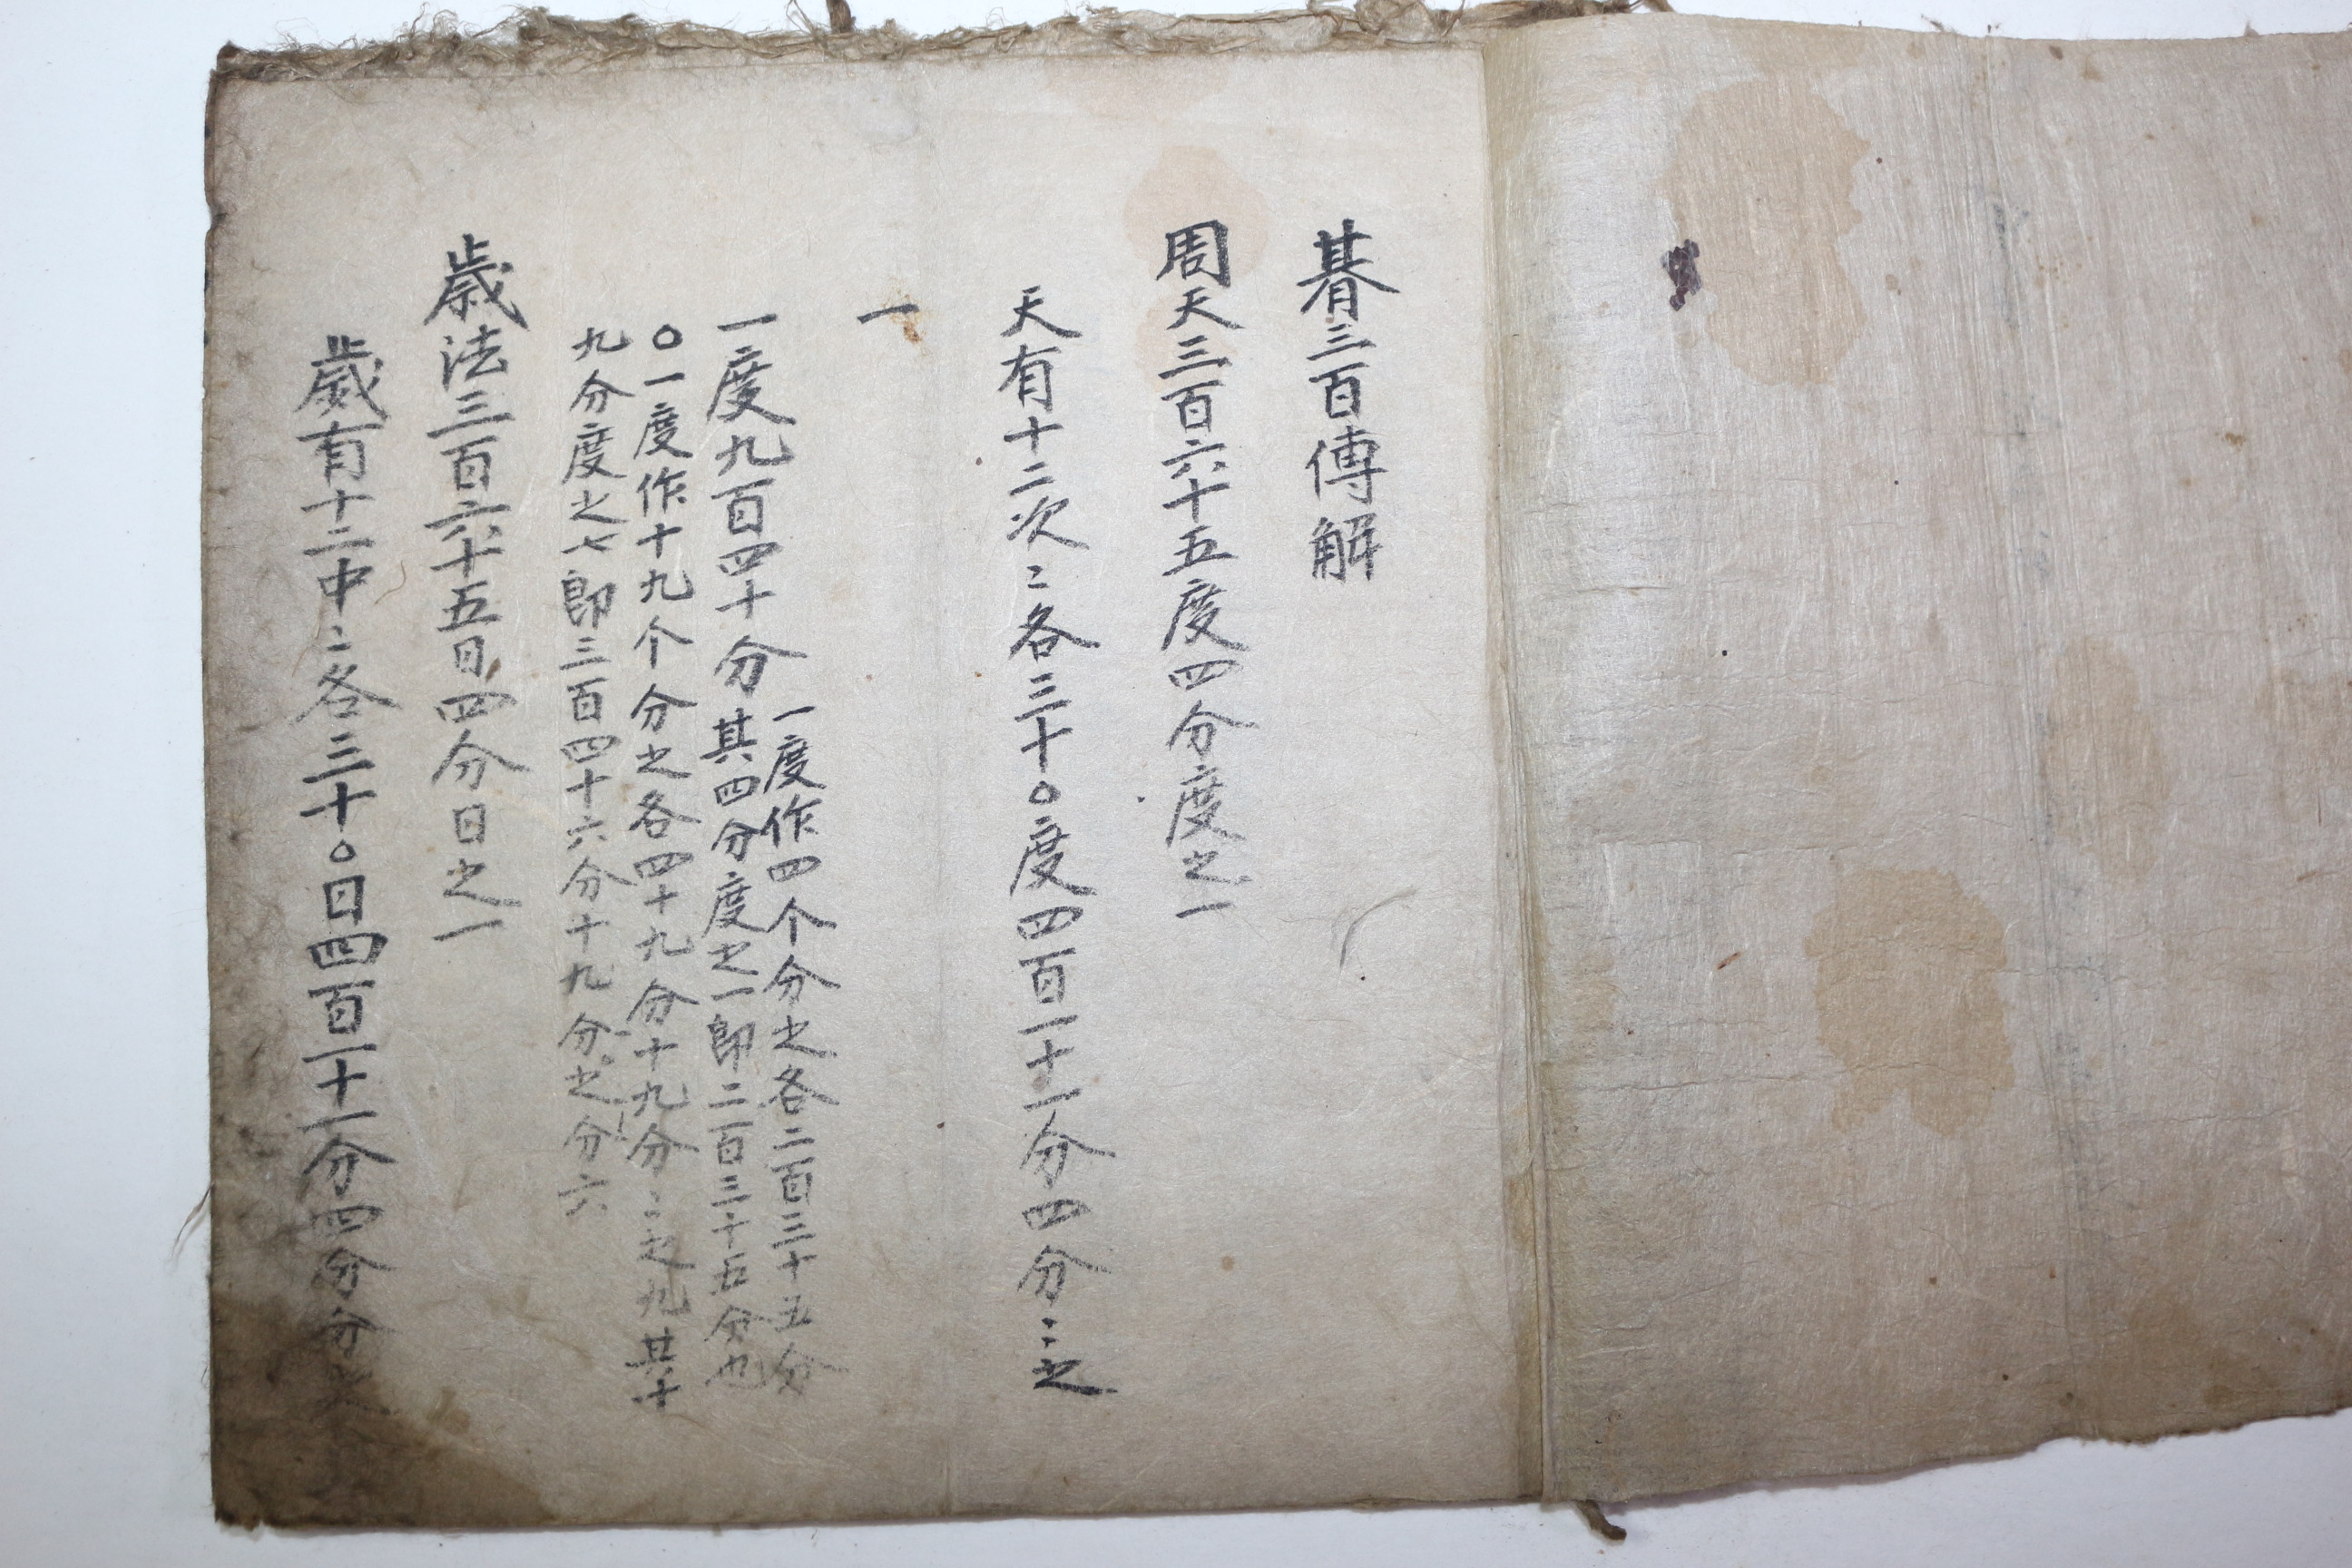 朞三百傳解
周天三百六十五度四分度之一
天有十二次〻各三十〇度四百一十一分四分〻之
一
一度九百四十分
一度作四个分之各二百三十五分
其四分度之一即二百三十五分也
〇一度作十九个分之各四十九分十九分〻之九其十
九分度之七即三百四十六分十九分之分六
歲法三百六十五日四分日之一
歲有十二中〻各三十〇日四百一十一分四分分之